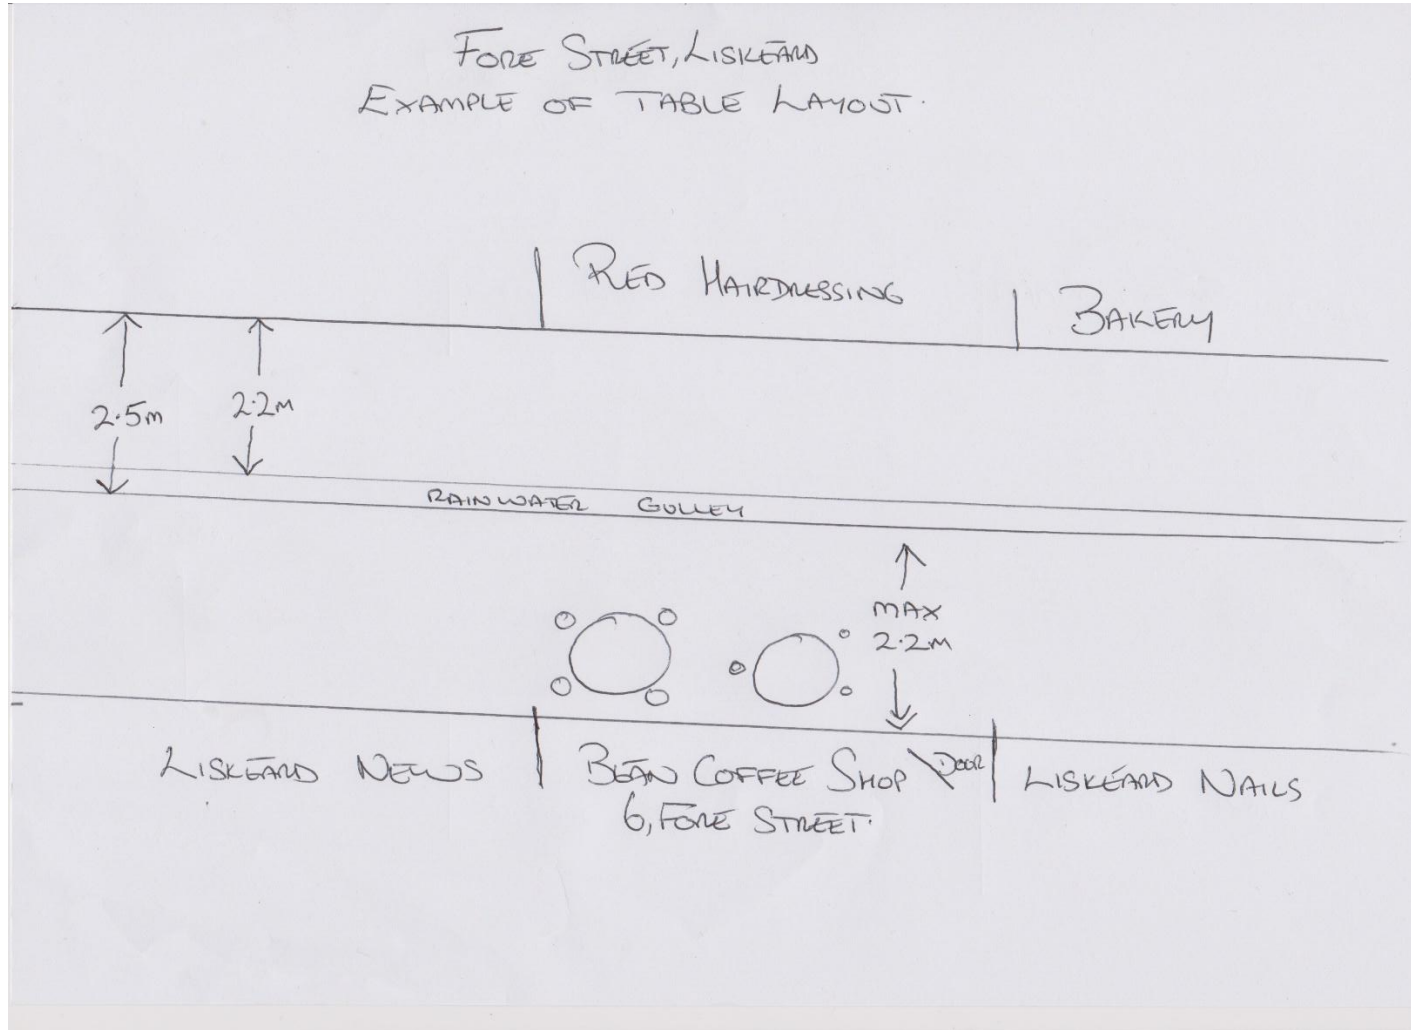 FORE STREET, LISKEARD
EXAMPLE OF TABLE LAYOUT.
RED HAIRDRESSING
BAKERY
2.5m
2.2m
RAINWATER GULLEY
MAX
2.2m
LISKEARD NEWS
BEAN COFFEE SHOP
DOOR
LISKEARD NAILS
6, FORE STREET.